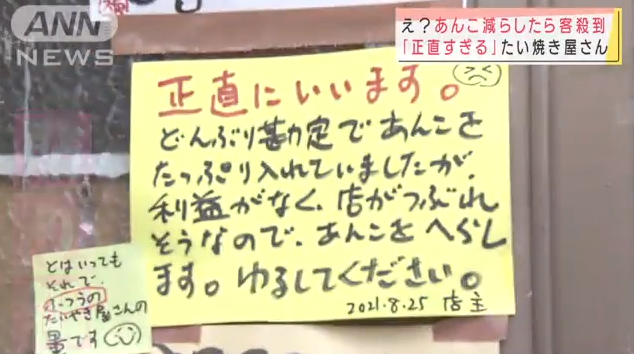 ANN
NEWS
え？あんこ減らしたら客殺到
「正直すぎる」たい焼き屋さん
正直にいいます。
どんぶり勘定であんこを
たっぷり入れていましたが、
利益がなく、店がつぶれ
そうなので、あんこをへらし
ます。ゆるしてください。
2021.8.25 店主
とはいっても
それで、
ふつうの
たいやき屋さんの
量です